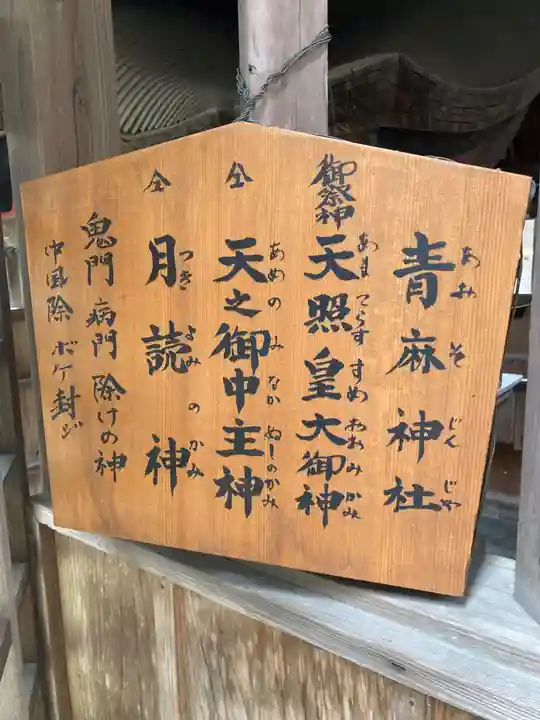 青麻神社
あおそじんじゃ
御祭神
天照皇大御神
あまてらすすめおおみかみ
仝
天之御中主神
あめのみなかぬしのかみ
仝
月読神
つきよみのかみ
鬼門 病門 除けの神
中風除 ボケ封ジ